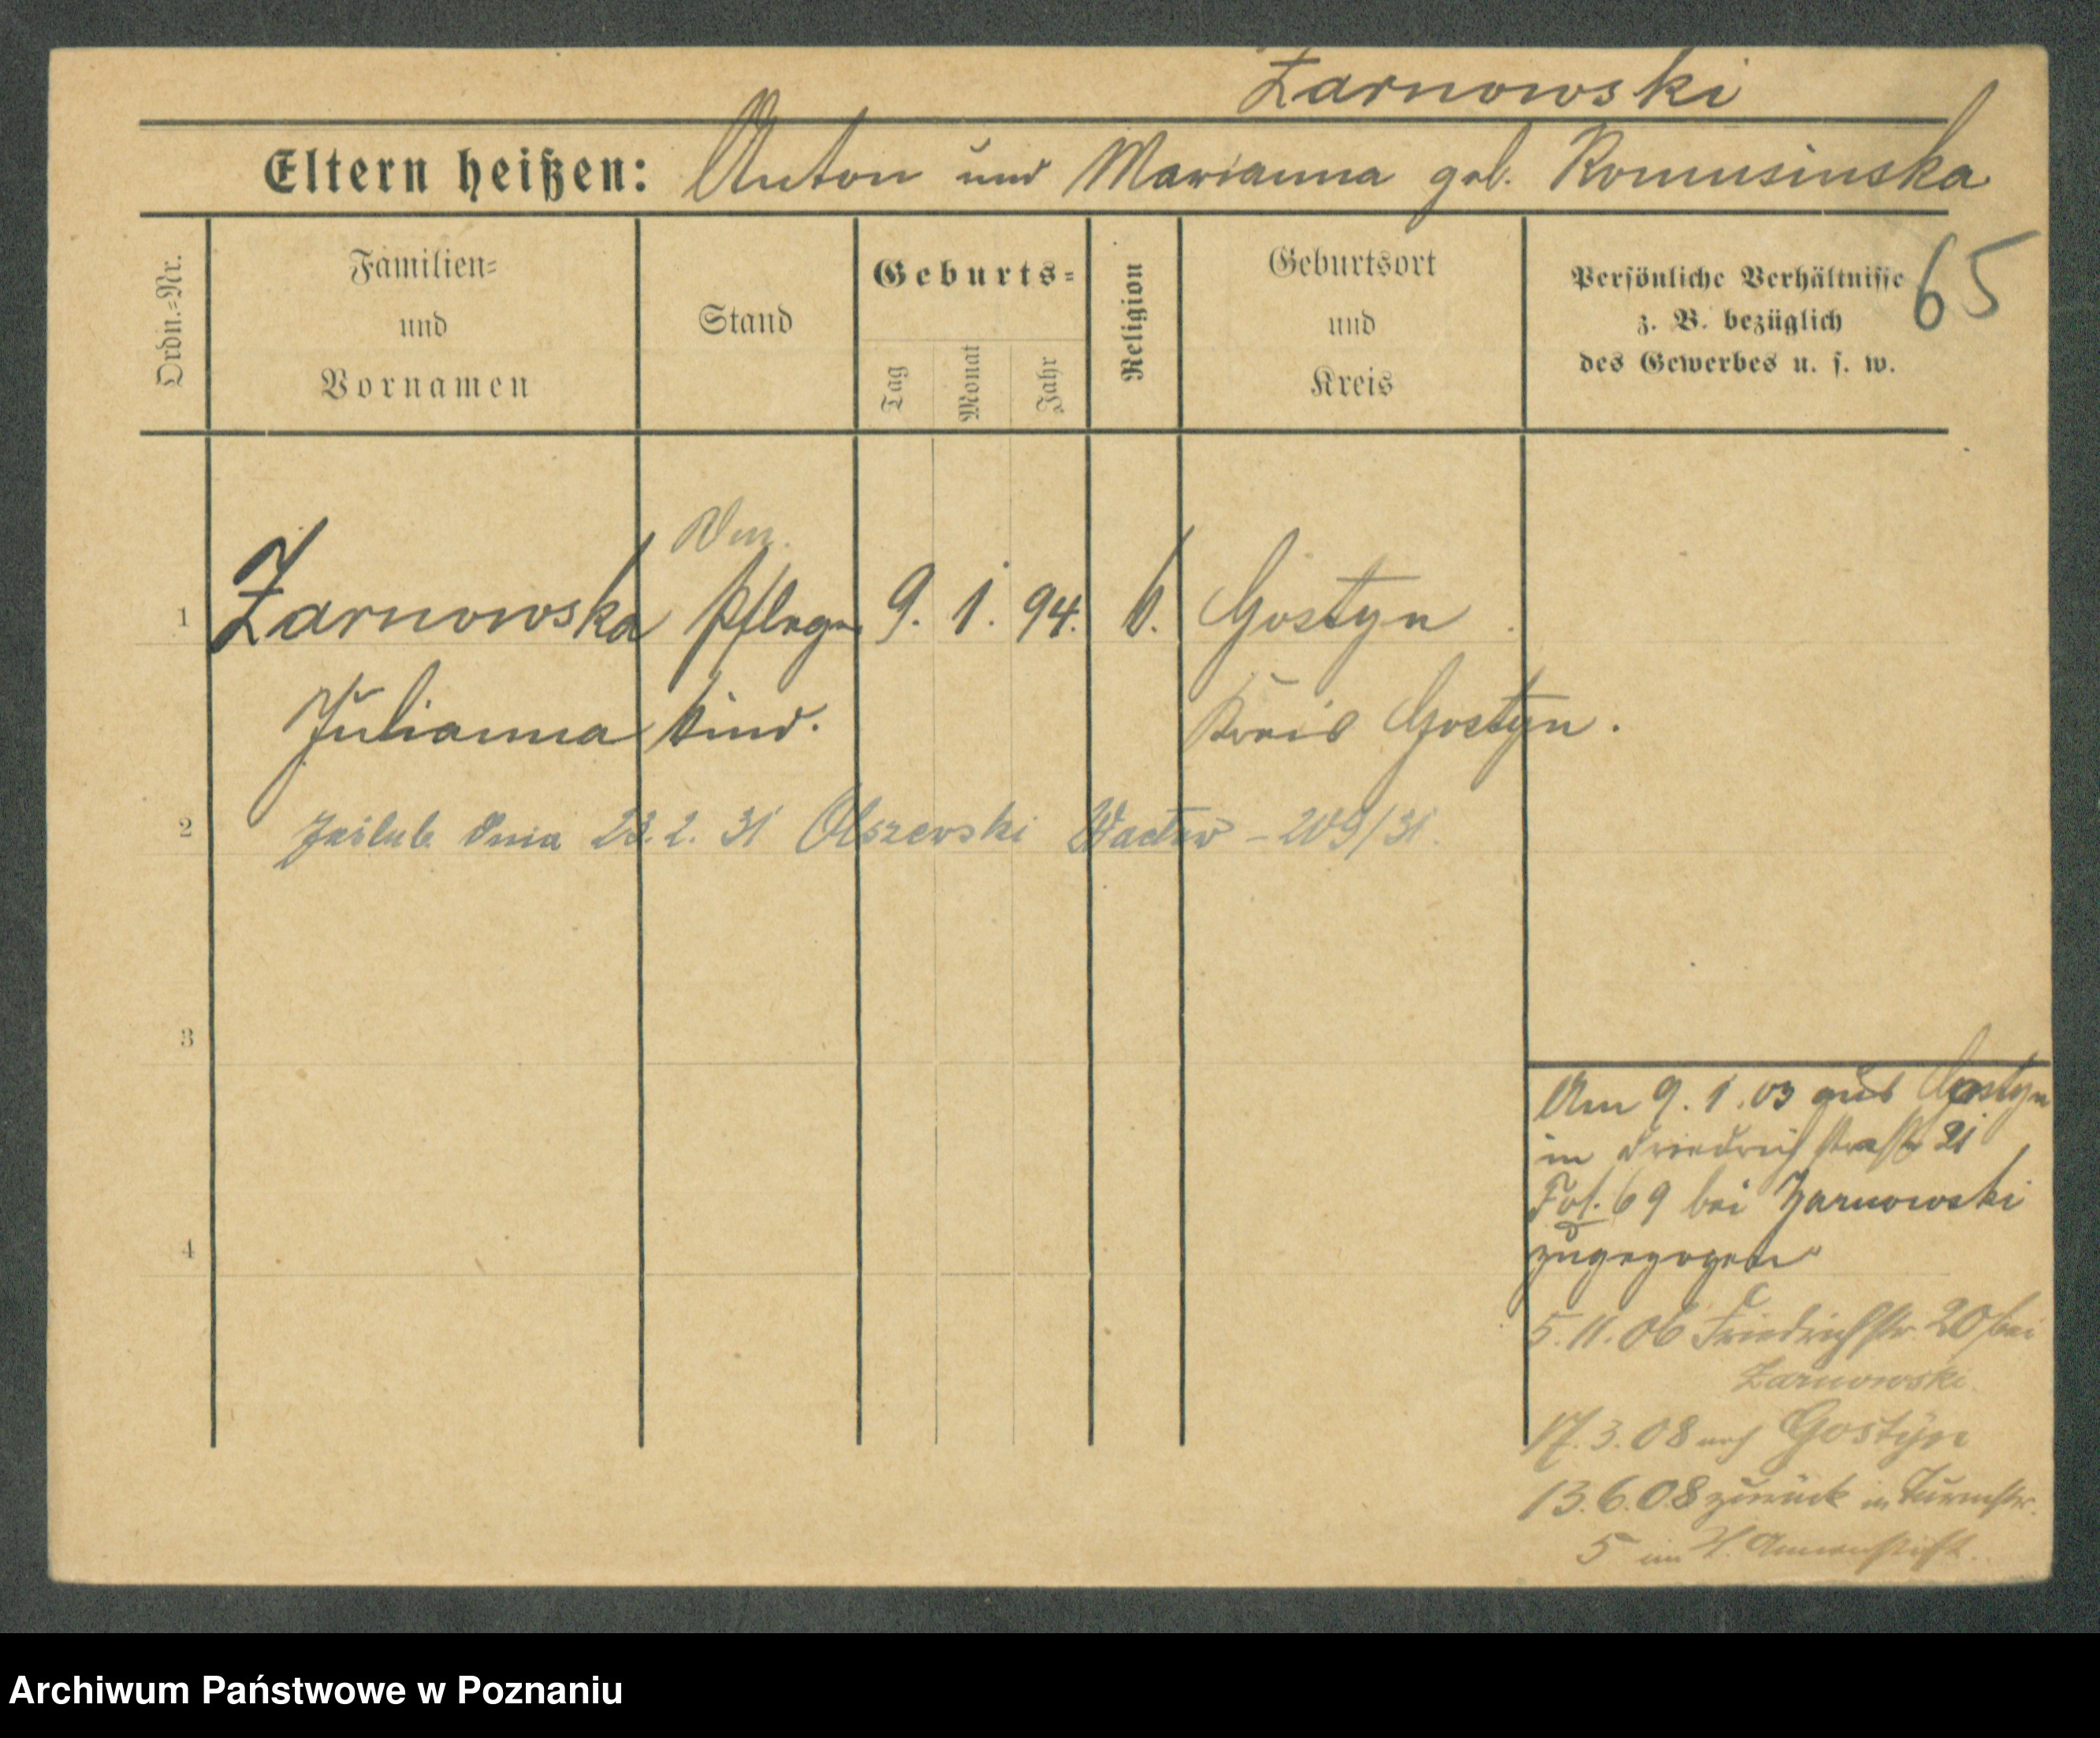 Żarnowski
Eltern heißen: Anton und Marianna geb. Romusinska
65
Ordn.=Nr.
Familien=
und
Vornamen
Stand
Geburts=
Tag
Monat
Jahr
Religion
Geburtsort
und
Kreis
Persönliche Verhältnisse
z. B. bezüglich
des Gewerbes u. s. w.
1 Żarnowska Pflege 9. 1. 94. k. Gostyn
Julianna kind. Kreis Gostyn.
2 zaślub. dnia 23.2.31 Olszewski Wacław – 209/31.
3
4
Am 9.1.03 aus Gostyn
in Friedrichstraße 21
Fol. 69 bei Żarnowski
zugezogen
5.11.06 Friedrichstr. 20 bei
Żarnowski
17.3.08 nach Gostyn
13.6.08 zurück in Turmstr.
5 im Annenstift.
Archiwum Państwowe w Poznaniu